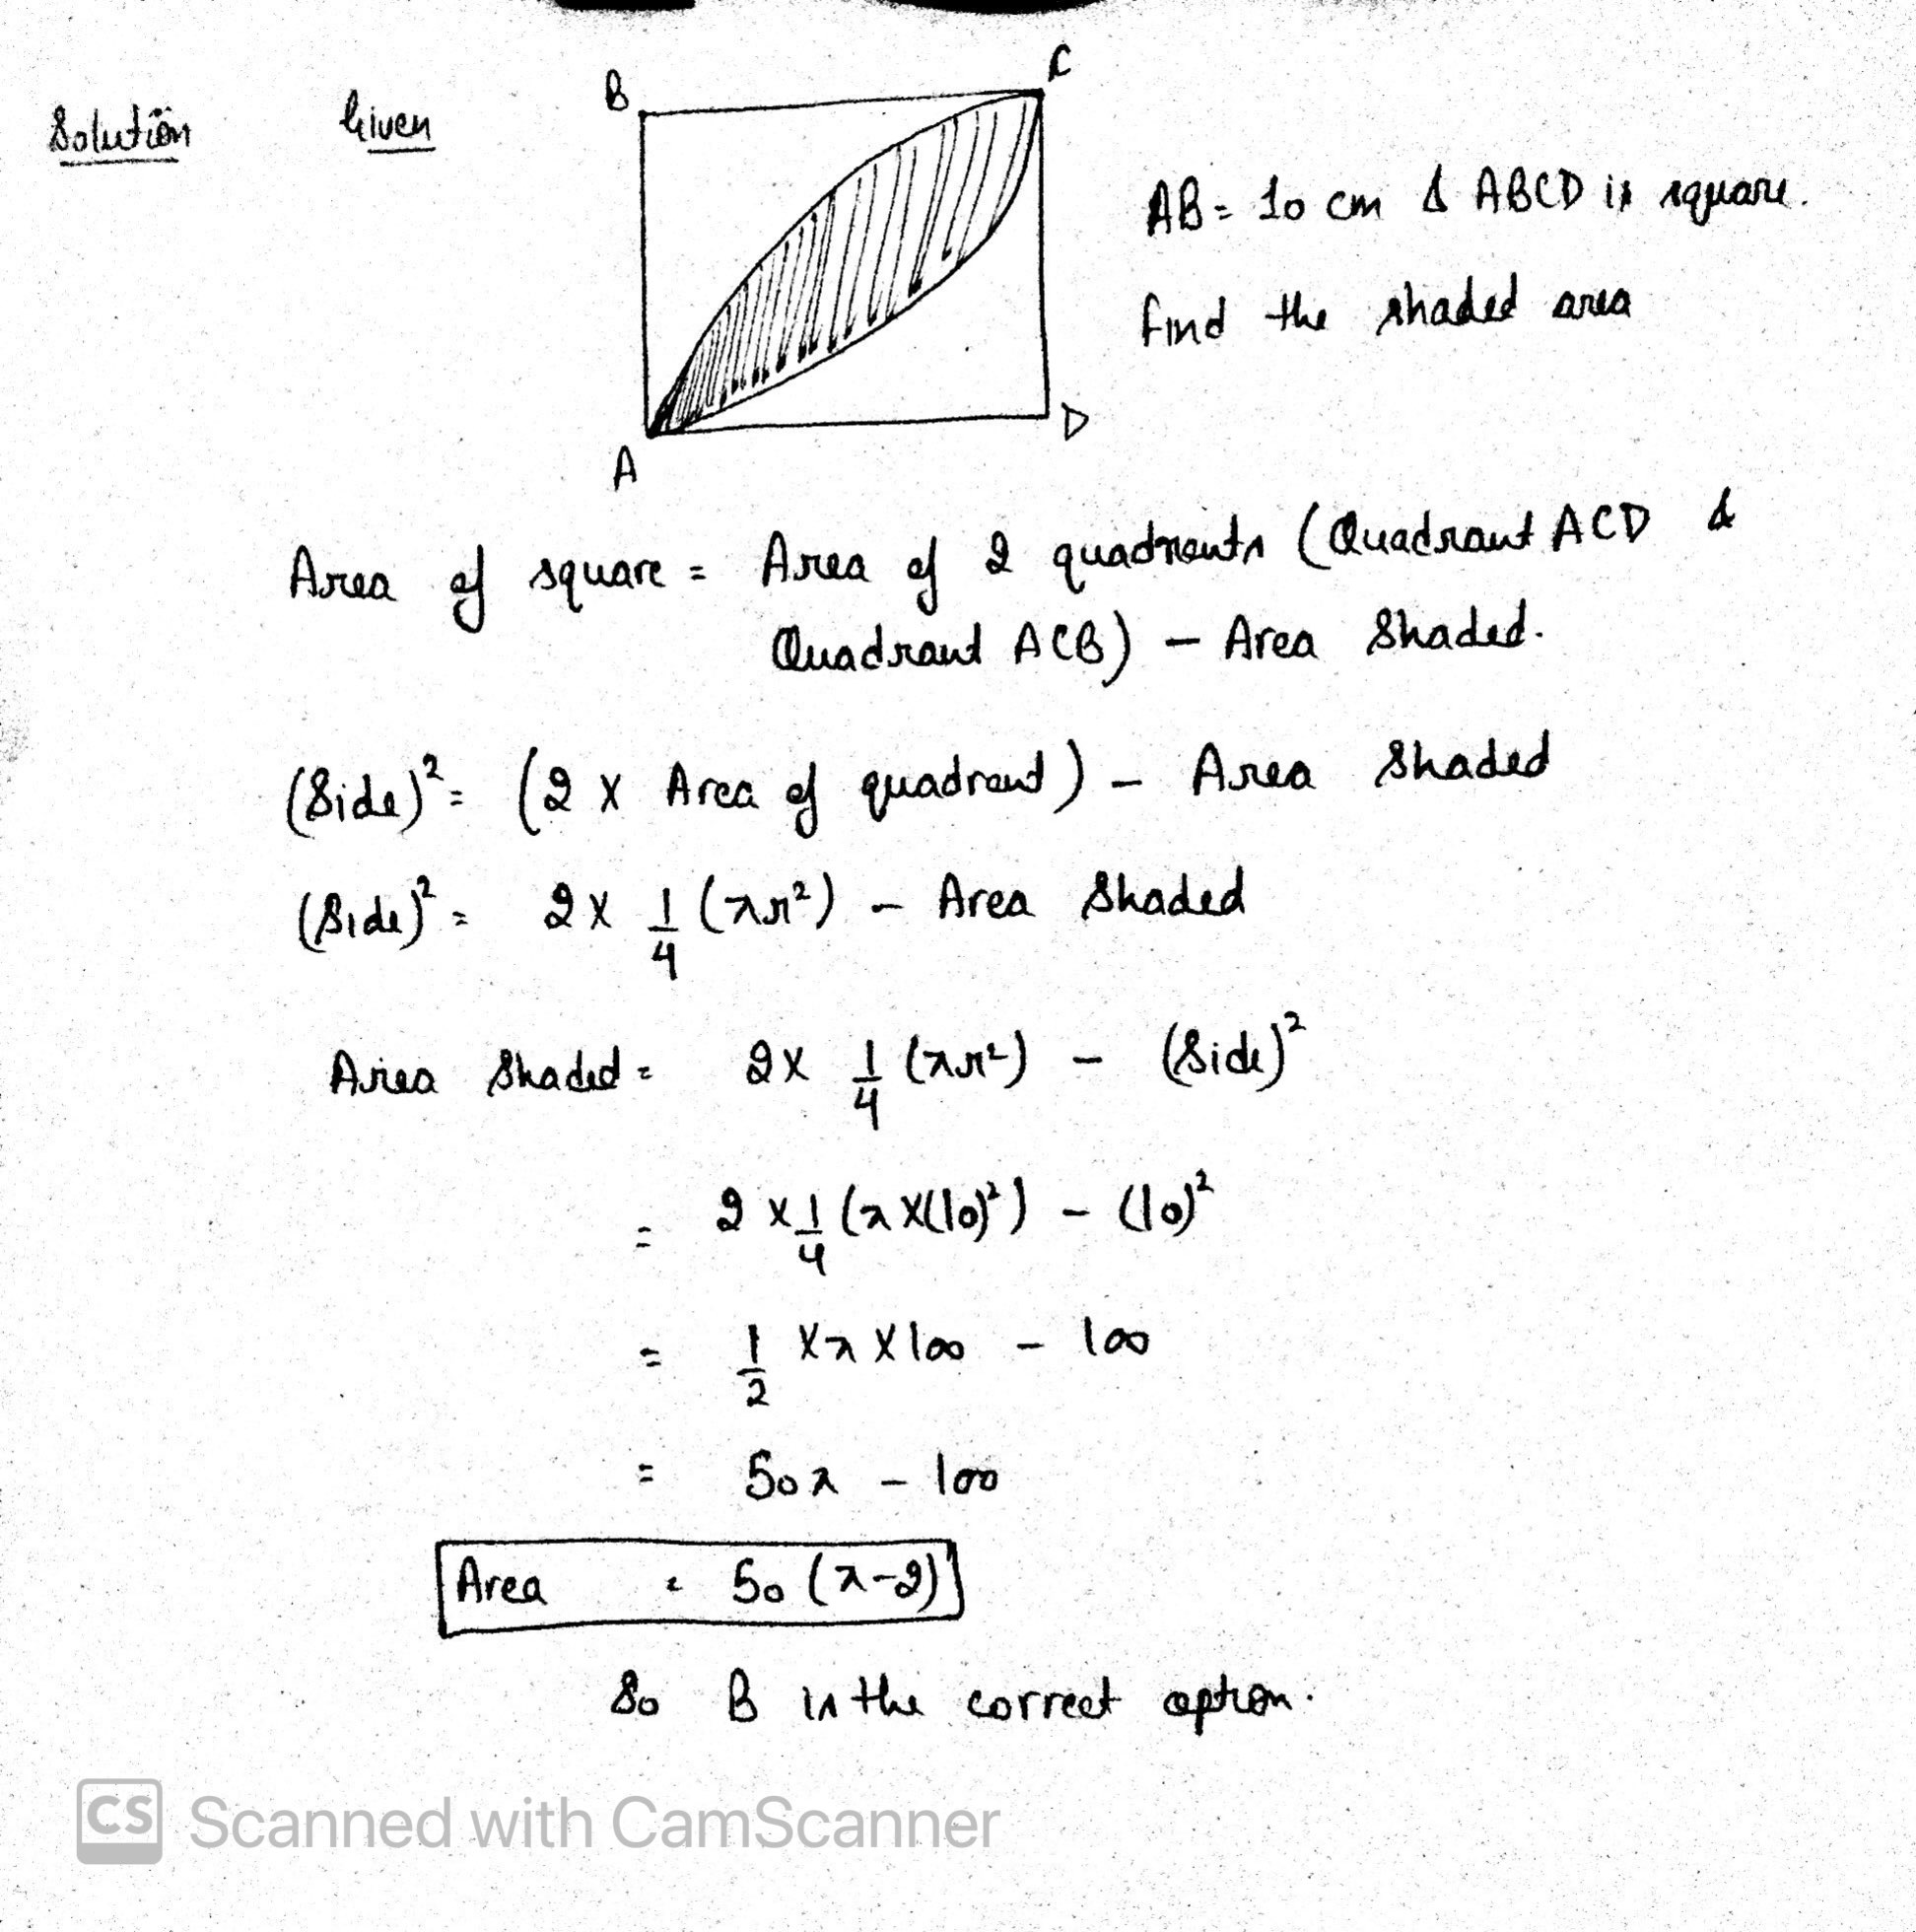 Solution Given
B
C
AB = 10 cm & ABCD is square.
find the shaded area
D
A
Area of square = Area of 2 quadrants (Quadrant ACD &
Quadrant ACB) - Area Shaded.
(Side)² = (2 x Area of quadrant) - Area Shaded
(Side)² = 2 x 1/4 (πr²) - Area Shaded
Area Shaded = 2x 1/4 (πr²) - (Side)²
= 2 x 1/4 (π x(10)²) - (10)²
= 1/2 xπ x 100 - 100
= 50π - 100
Area = 50 (π-2)
So B is the correct option.
CS Scanned with CamScanner